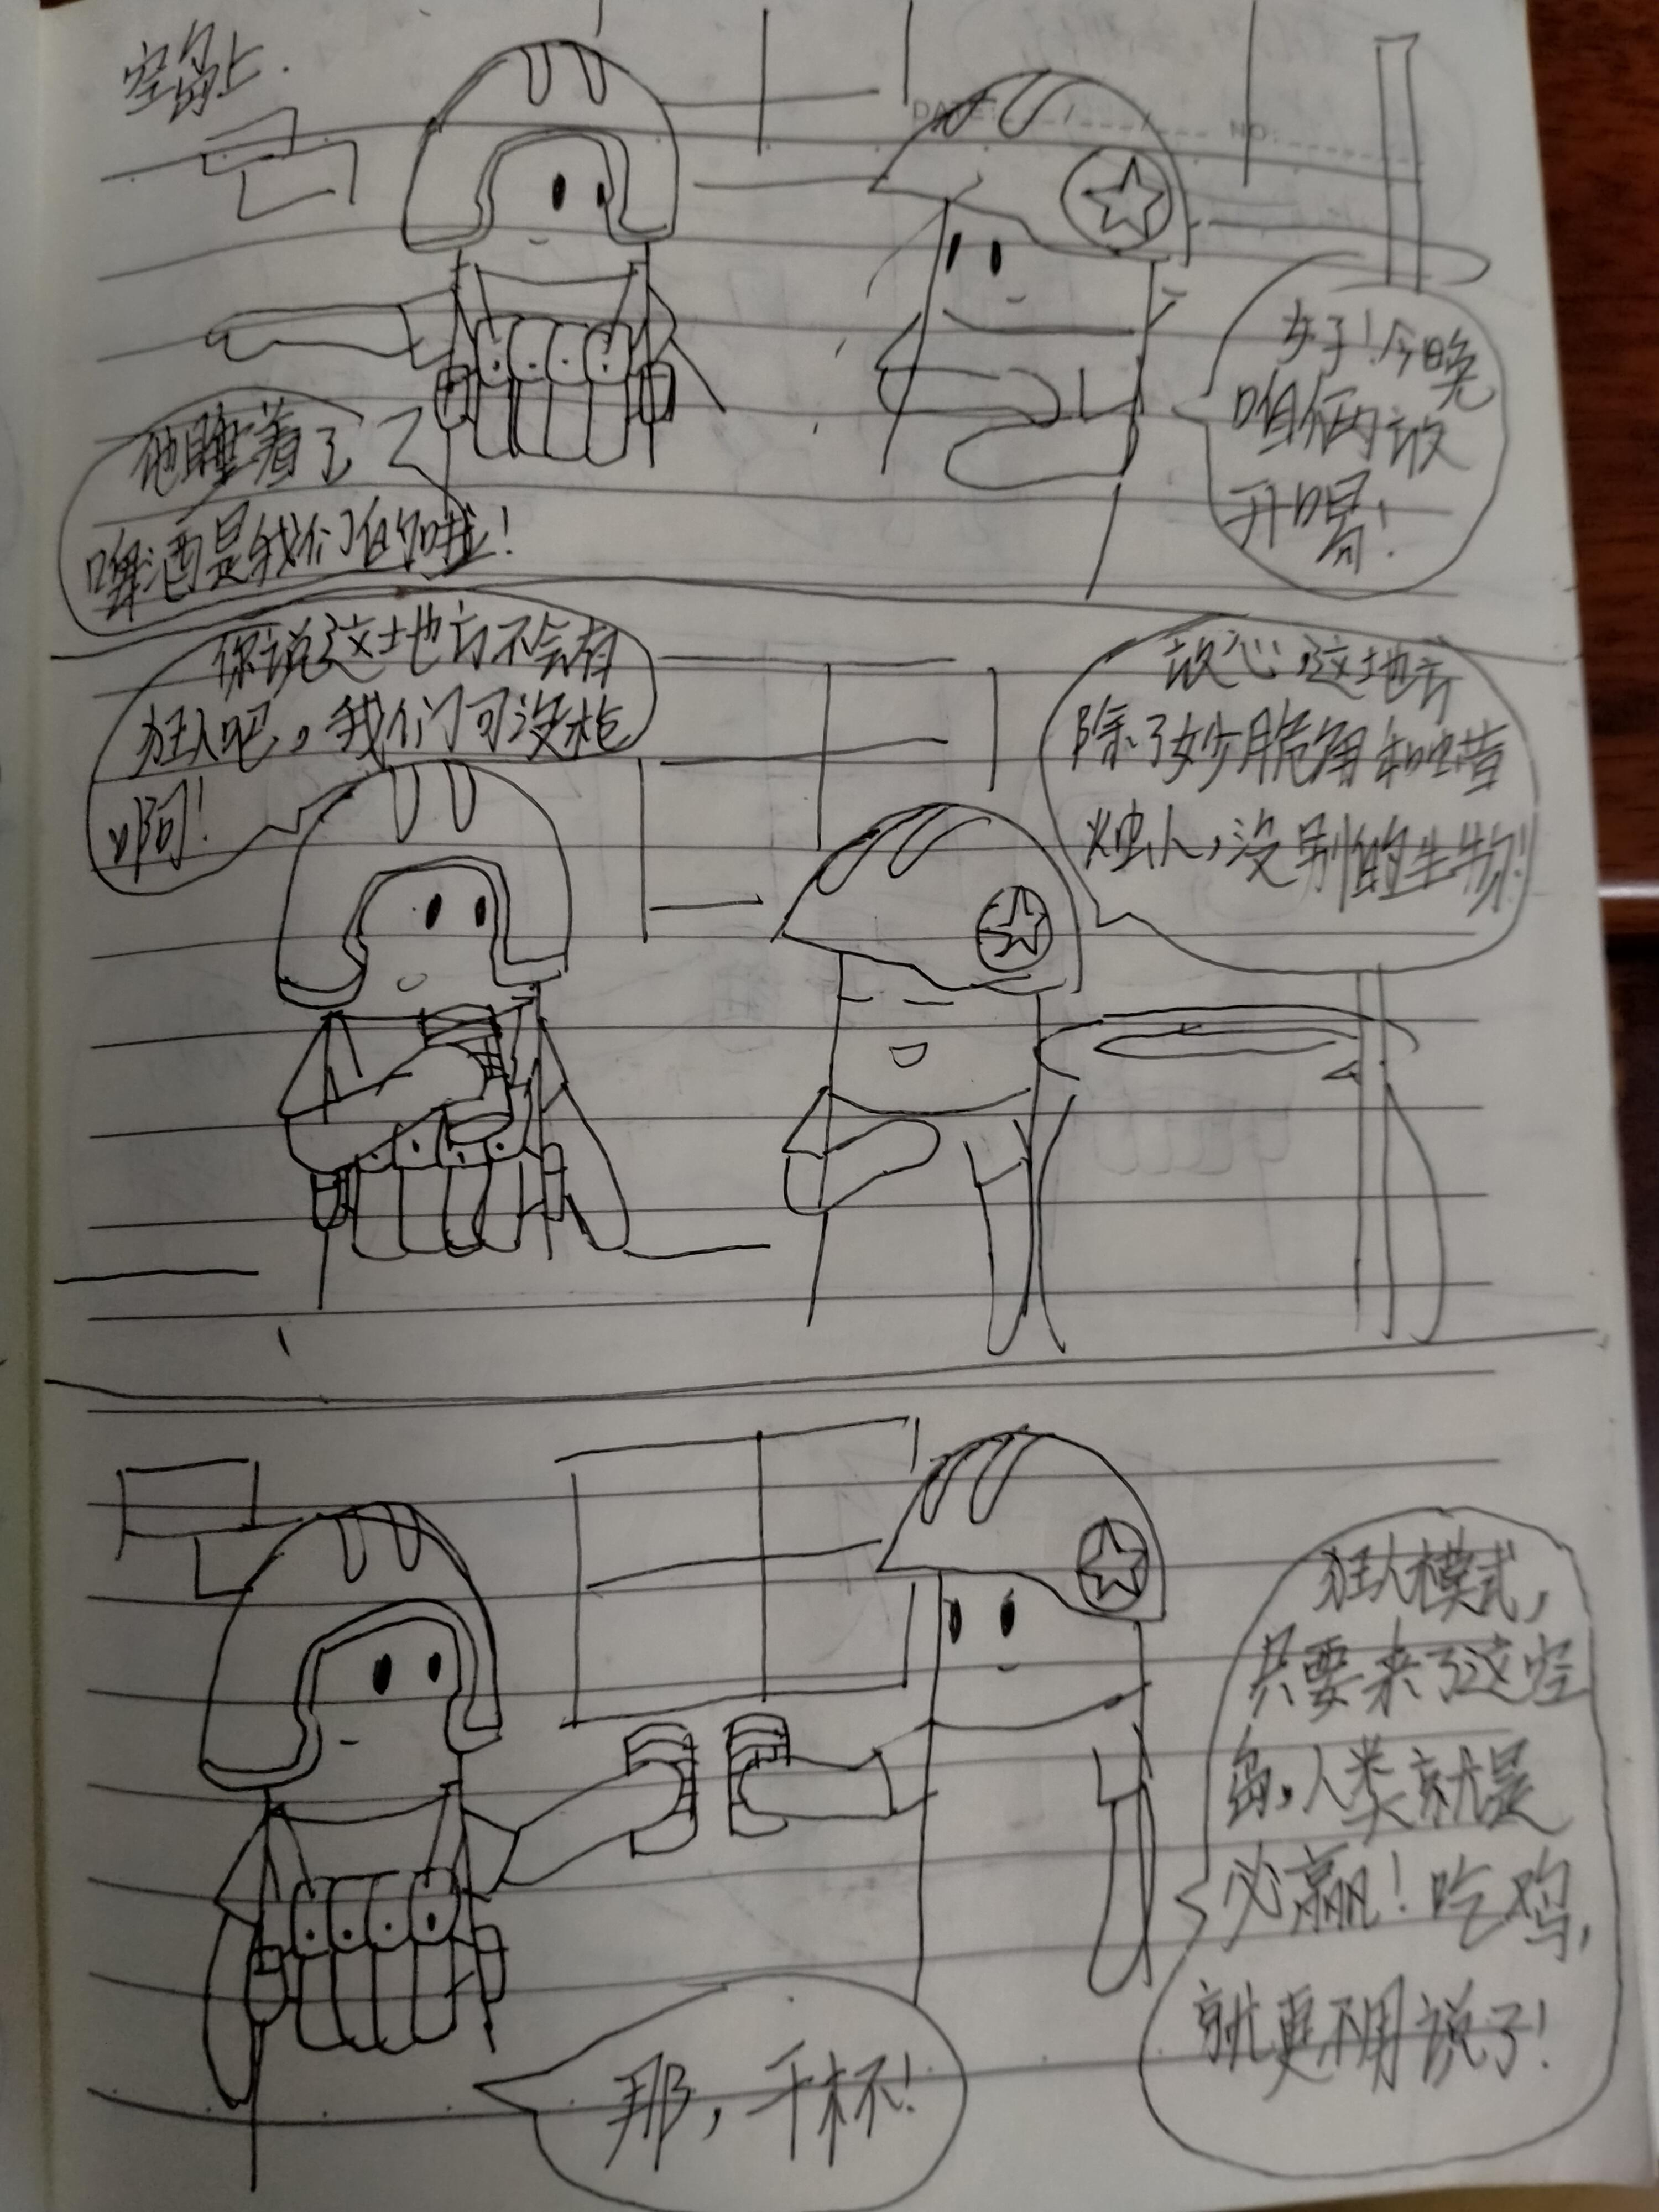 空岛上.
DATE / / NO:
他睡着了,
啤酒是我们的啦!
好!今晚
咱俩放
开喝!
你说这地方不会有
狂人吧,我们可没枪
啊!
放心,这地方
除了妙脆角和蜡
烛人,没别的生物!
狂人模式,
只要来了这空
岛,人类就是
必赢!吃鸡,
就更不用说了!
那,干杯!